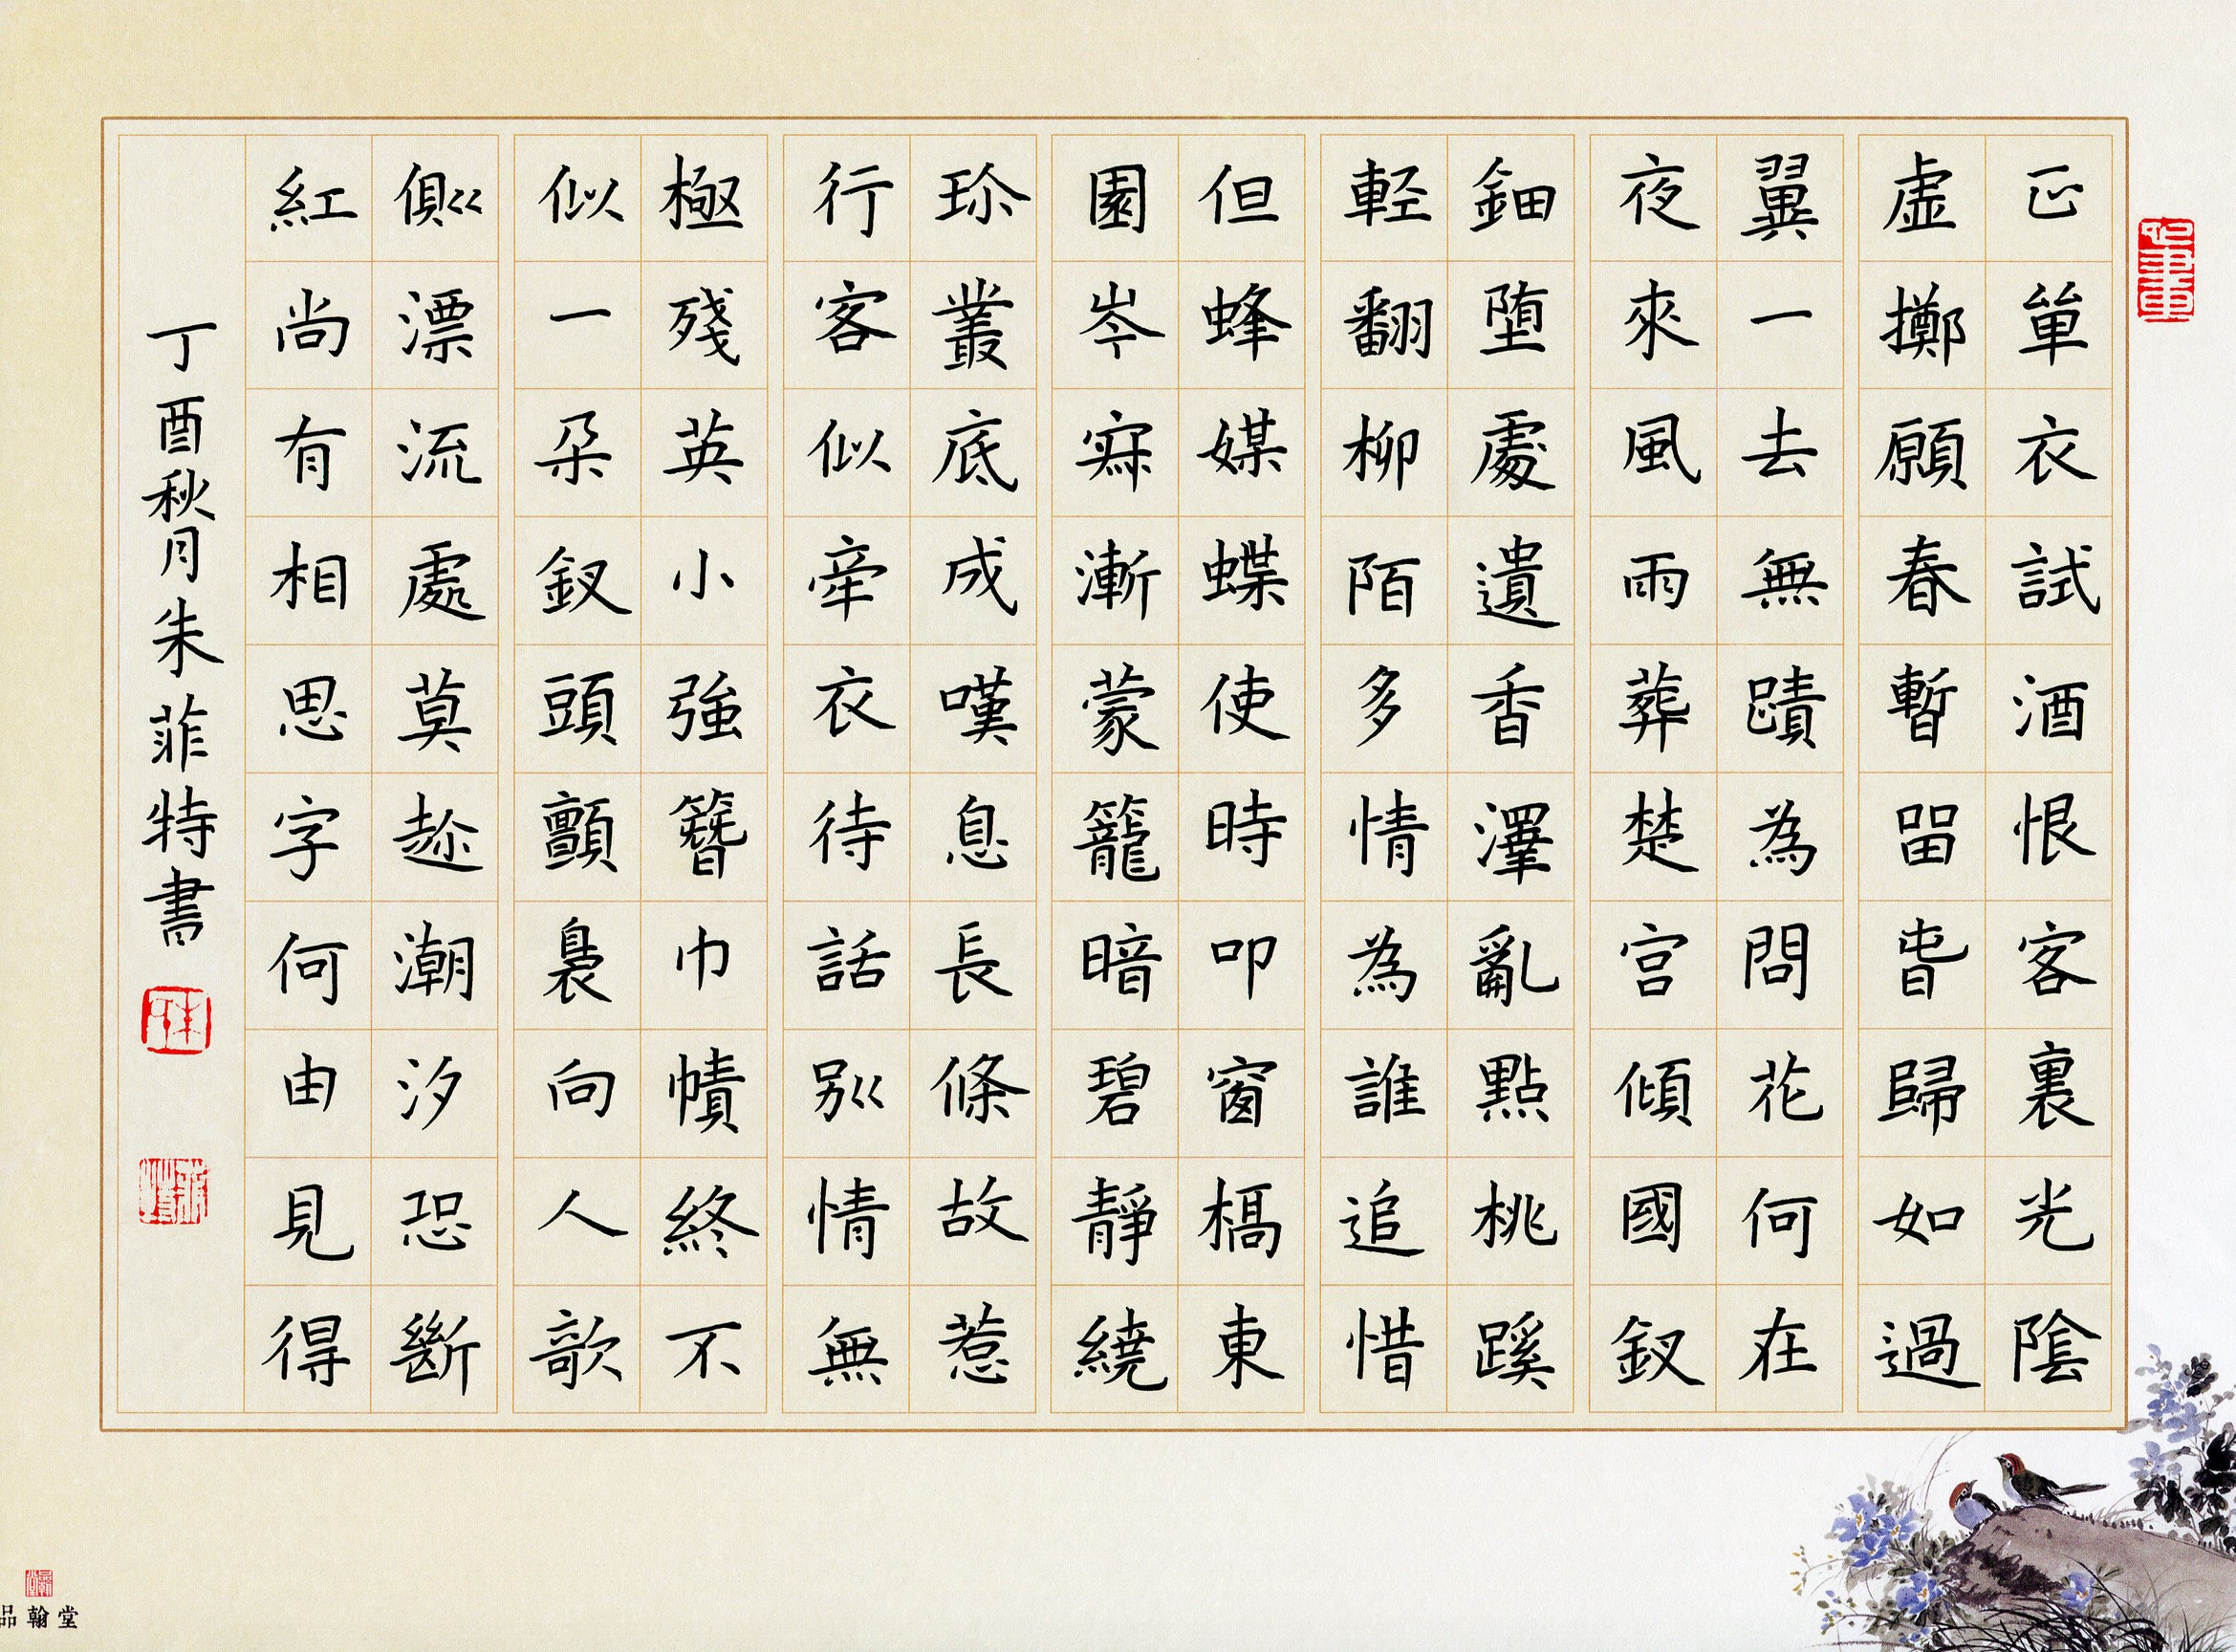 正單衣試酒恨客裏光陰
虛擲願春暫留春歸如過
翼一去無蹟為問花何在
夜來風雨葬楚宮傾國釵
鈿墮處遺香澤亂點桃蹊
輕翻柳陌多情為誰追惜
但蜂媒蝶使時叩窗槅東
園岑寂漸蒙籠暗碧靜繞
珍叢底成嘆息長條故惹
行客似牽衣待話別情無
極殘英小強簪巾幘終不
似一朵釵頭顫裊向人欹
側漂流處莫趁潮汐恐斷
紅尚有相思字何由見得
丁酉秋月朱菲特書
品翰堂